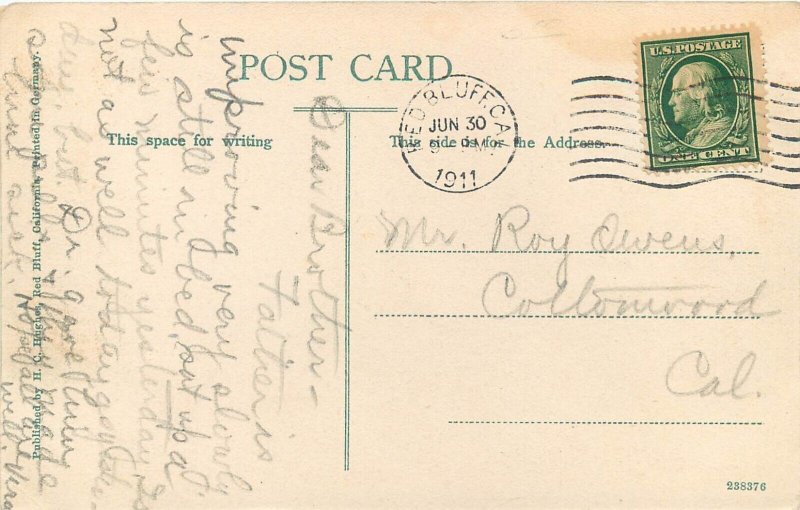 POST CARD
This space for writing
This side is for the Address.
RED BLUFF CAL
JUN 30
1911
U.S. POSTAGE
ONE CENT
Mr. Roy Owens,
Cottonwood
Cal.
Dear Brother-
Father is
improving very slowly
is still in bed, sat up a
few minutes yesterday. Is
not as well today as yester-
day, but Dr. gave him
made
him sick. Hope all are
well. Vera
Published by H. C. Hughes, Red Bluff, California. Printed in Germany.
238376